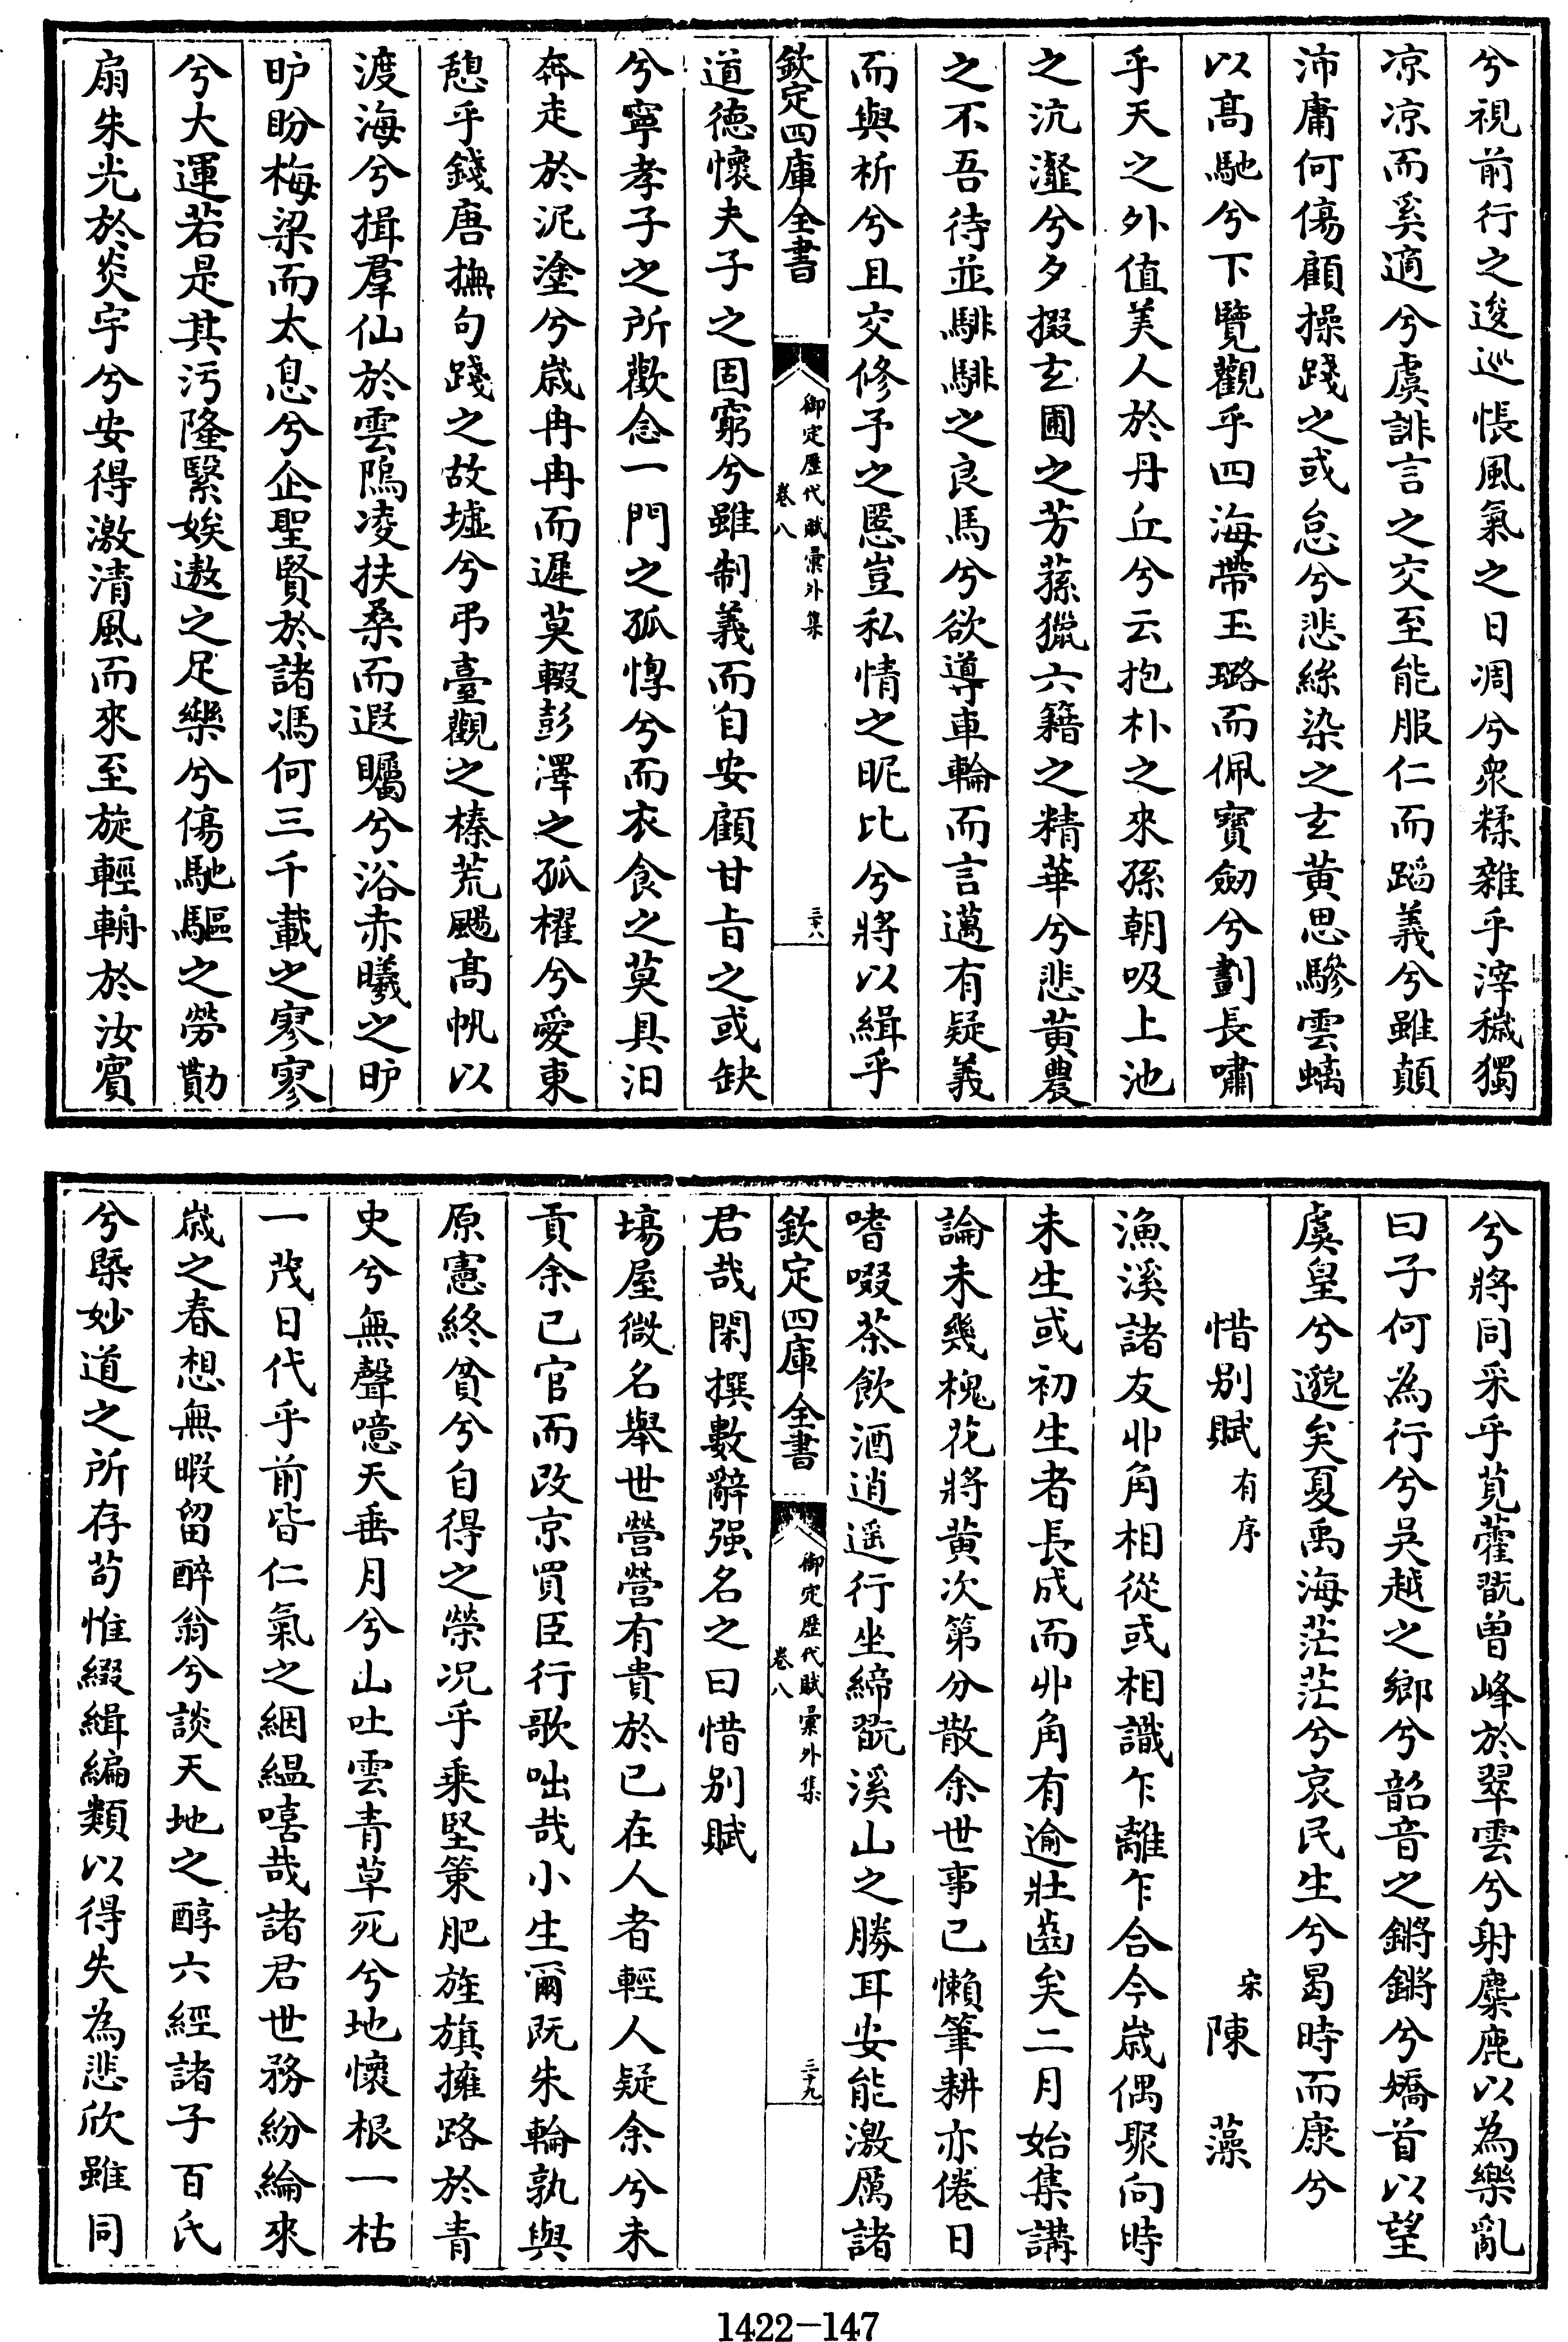 兮視前行之逡巡悵風氣之日凋兮衆糅雜乎滓穢獨
凉凉而奚適兮虞誹言之交至能服仁而蹈義兮雖顛
沛庸何傷顧操踐之或怠兮悲絲染之玄黄思驂雲螭
以髙馳兮下覽觀乎四海帶玉璐而佩寶劒兮劃長嘯
乎天之外值美人於丹丘兮云抱朴之來孫朝吸上池
之沆瀣兮夕掇玄圃之芳蓀獵六籍之精華兮悲黄農
之不吾待並騑騑之良馬兮欲導車輪而言邁有疑義
而與析兮且交修予之慝豈私情之昵比兮將以緝乎
欽定四庫全書
御定歴代賦彙外集
卷八
三十八
道德懷夫子之固窮兮雖制義而自安顧甘旨之或缺
兮寧孝子之所歡念一門之孤惸兮而衣食之莫具汨
奔走於泥塗兮嵗冉冉而遲莫輟彭澤之孤櫂兮愛東
憩乎錢唐撫句踐之故墟兮弔臺觀之榛荒颺髙帆以
渡海兮揖羣仙於雲隖凌扶桑而遐矚兮浴赤曦之昈
昈盼梅梁而太息兮企聖賢於諸馮何三千載之寥寥
兮大運若是其污隆繄娭遨之足樂兮傷馳驅之勞勩
扇朱光於炎宇兮安得激清風而來至旋輕輈於汝賔
兮將同采乎莧藿翫曽峰於翠雲兮射麋鹿以為樂亂
曰子何為行兮吳越之鄉兮韶音之鏘鏘兮矯首以望
虞皇兮邈矣夏禹海茫茫兮哀民生兮曷時而康兮
惜别賦有序
宋陳藻
漁溪諸友丱角相從或相識乍離乍合今嵗偶聚向時
未生或初生者長成而丱角有逾壯齒矣二月始集講
論未幾槐花將黄次第分散余世事已懶筆耕亦倦日
嗜啜茶飲酒逍遥行坐締翫溪山之勝耳安能激厲諸
欽定四庫全書
御定歴代賦彙外集
卷八
三十九
君哉閑撰數辭强名之曰惜别賦
塲屋微名舉世營營有貴於已在人者輕人疑余兮未
貢余已官而改京買臣行歌咄哉小生爾既朱輪孰與
原憲終貧兮自得之榮况乎乗堅策肥旌旗擁路於青
史兮無聲噫天垂月兮山吐雲青草死兮地懷根一枯
一茂日代乎前皆仁氣之絪緼嘻哉諸君世務紛綸來
嵗之春想無暇留醉翁兮談天地之醇六經諸子百氏
兮槩妙道之所存苟惟綴緝編類以得失為悲欣雖同
1422-147